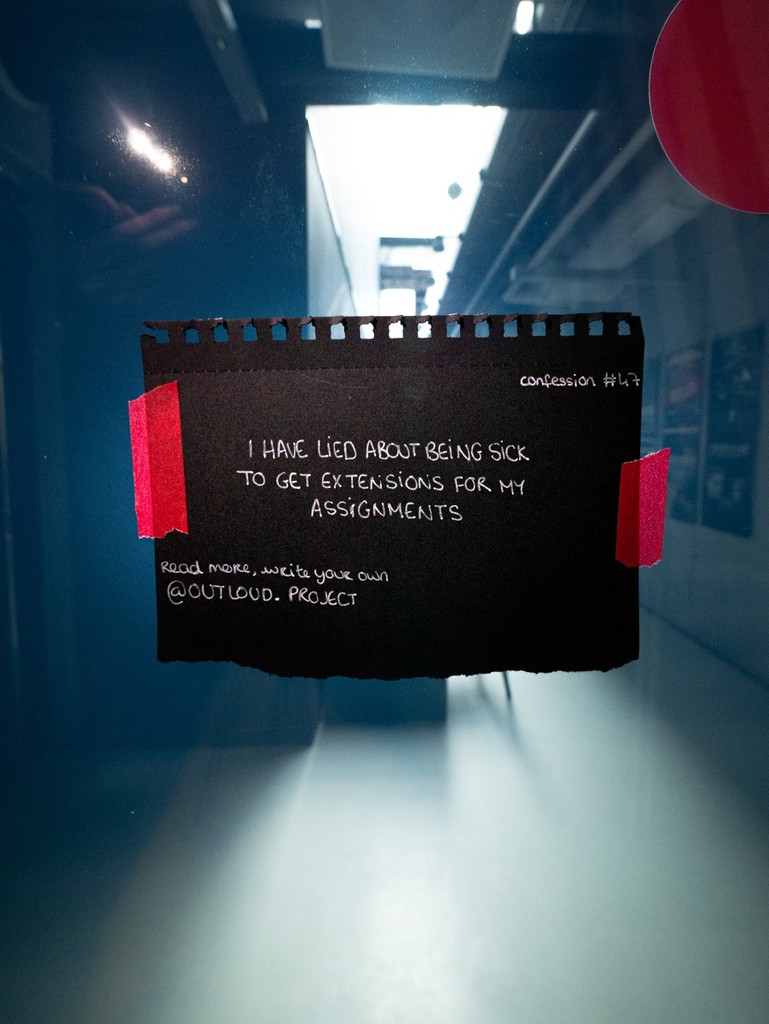 confession #47
I HAVE LIED ABOUT BEING SICK
TO GET EXTENSIONS FOR MY
ASSIGNMENTS
Read more, write your own
@OUTLOUD.PROJECT